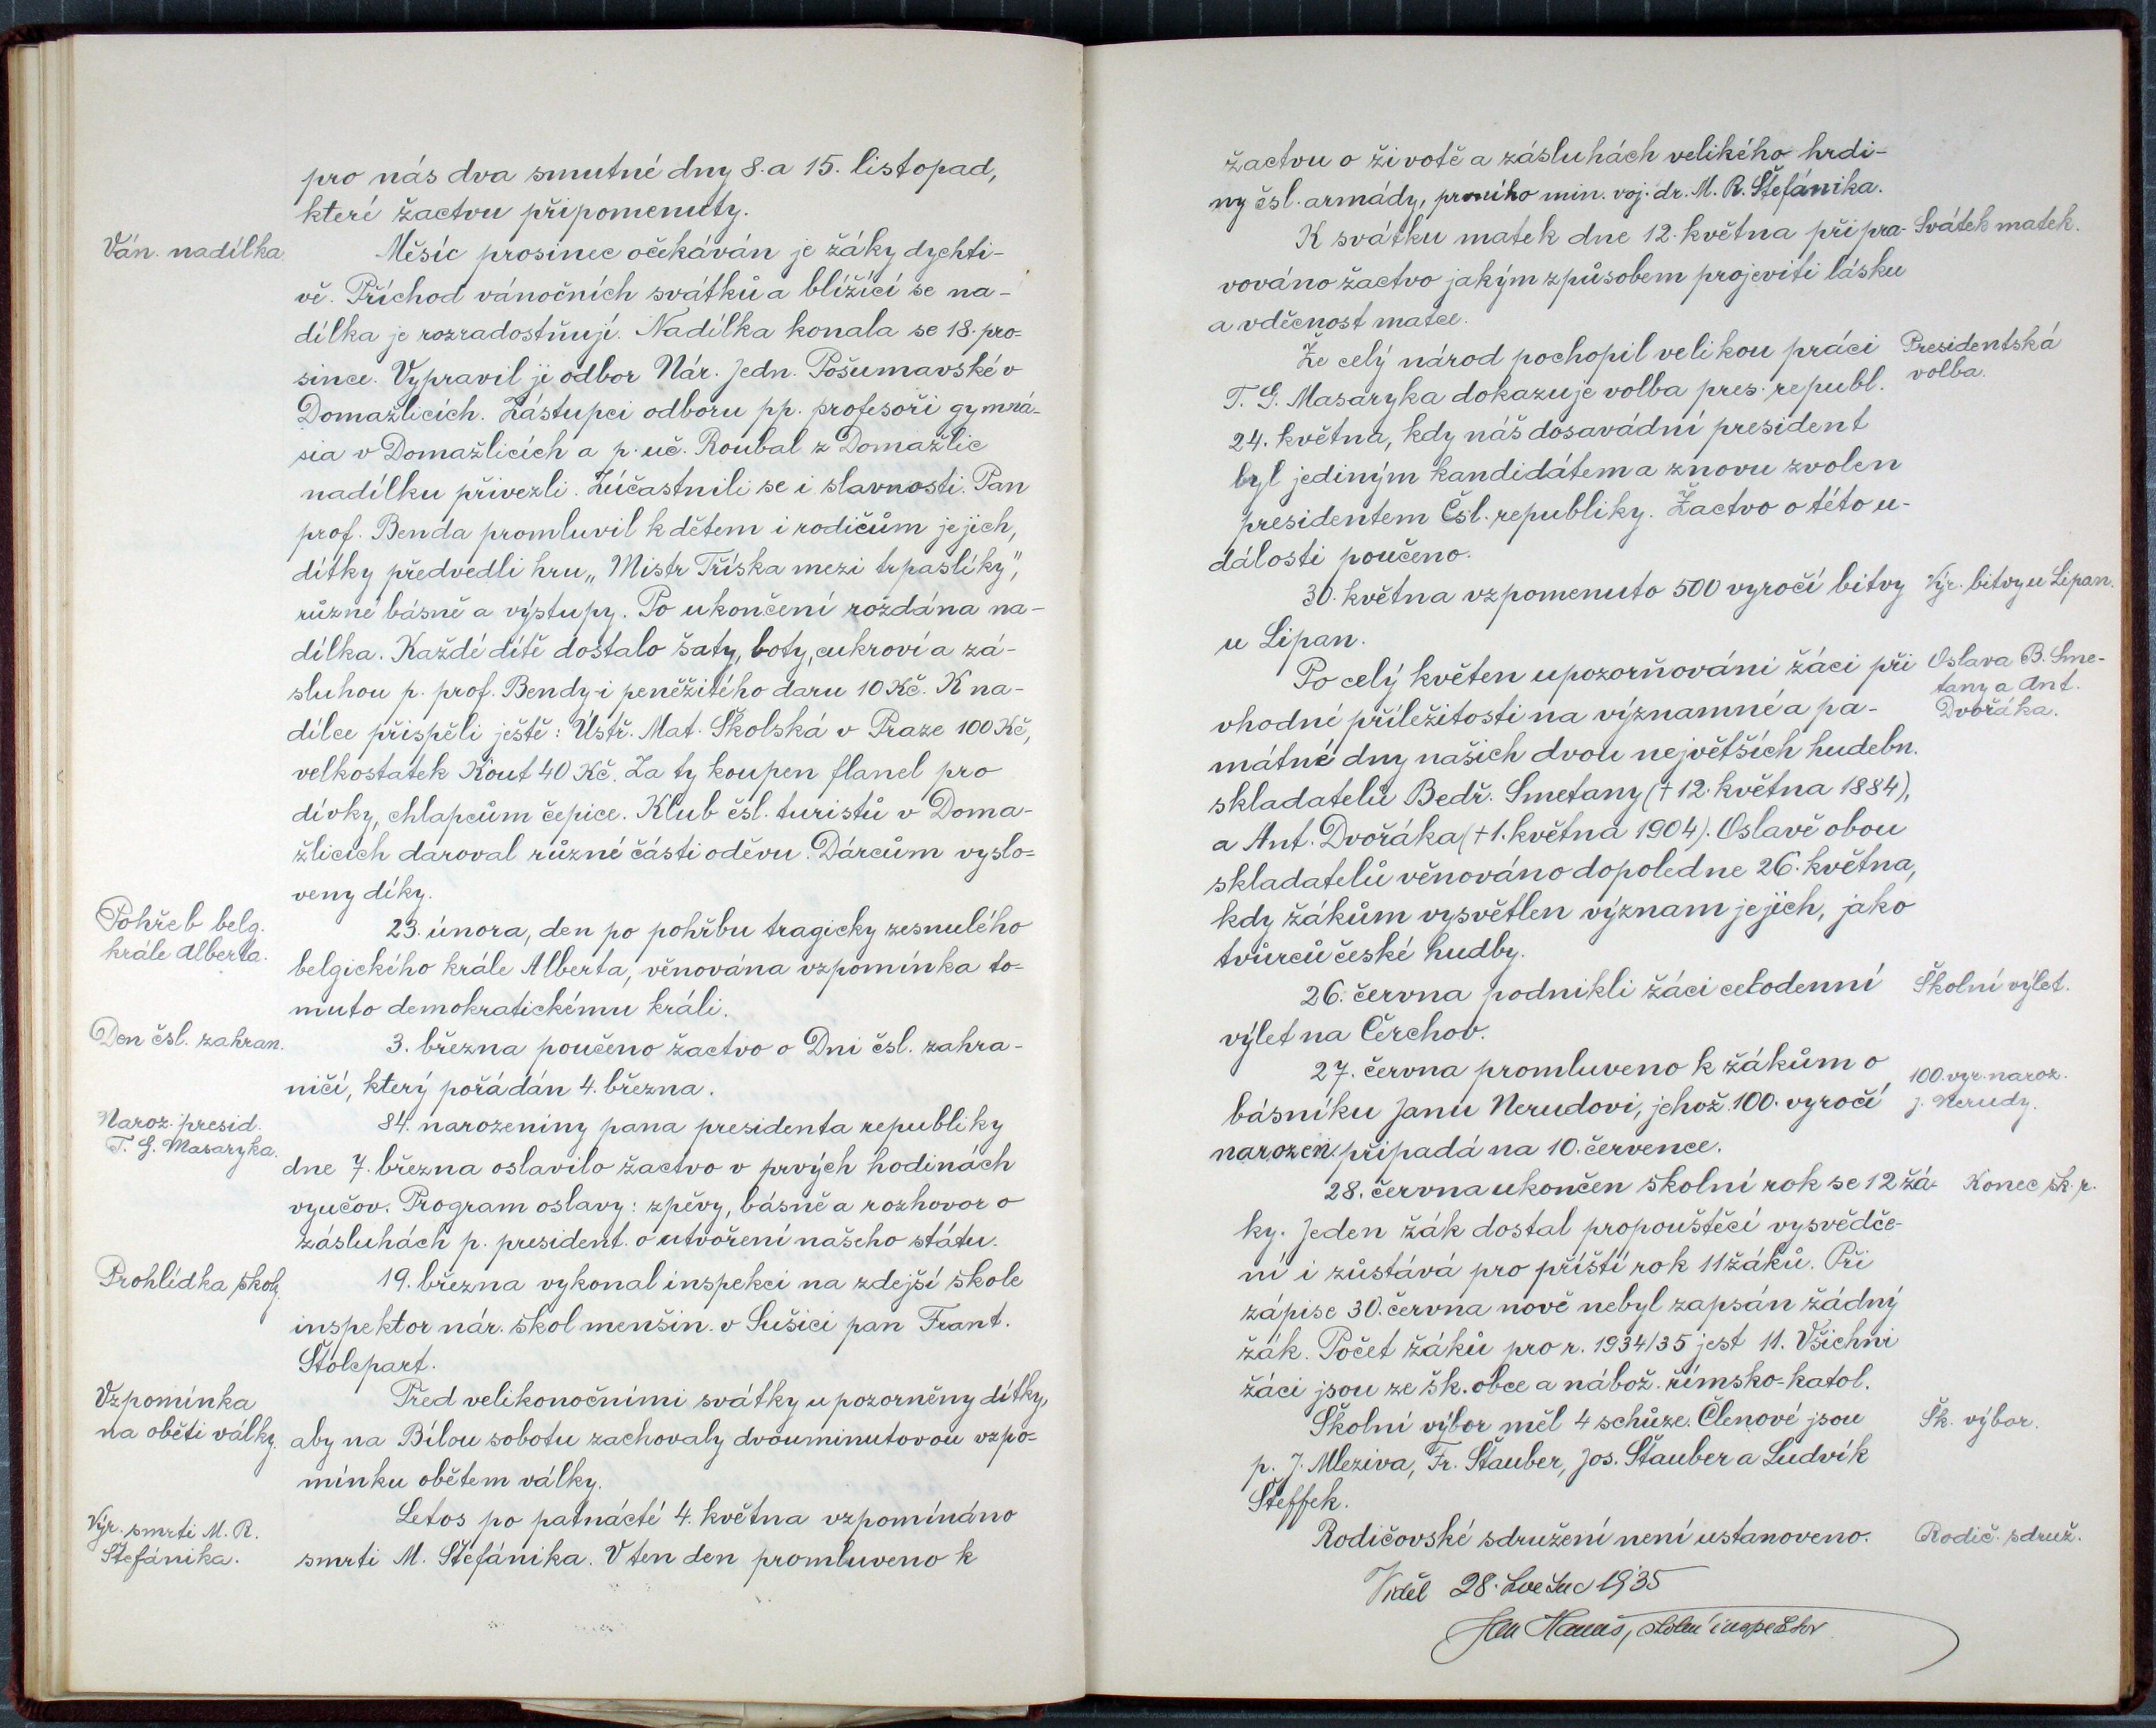 pro nás dva smutné dny 8. a 15. listopad,
které žactvu připomenuty.
Ván. nadílka.
Měsíc prosinec očekáván je žáky dychti-
vě. Příchod vánočních svátků a blížící se na-
dílka je rozradostňují. Nadílka konala se 18. pro-
since. Vypravil ji odbor Nár. Jedn. Pošumavské v
Domažlicích. Zástupci odboru pp. profesoři gymná-
sia v Domažlicích a p. uč. Roubal z Domažlic
nadílku přivezli. Zúčastnili se i slavnosti. Pan
prof. Benda promluvil k dětem i rodičům jejich,
dítky předvedli hru „Mistr Tříska mezi trpaslíky",
různé básně a výstupy. Po ukončení rozdána na-
dílka. Každé dítě dostalo šaty, boty, cukroví a zá-
sluhou p. prof. Bendy i peněžitého daru 10 Kč. K na-
dílce přispěli ještě: Ústř. Mat. Školská v Praze 100 Kč,
velkostatek Kout 40 Kč. Za ty koupen flanel pro
dívky, chlapcům čepice. Klub čsl. turistů v Doma-
žlicích daroval různé části oděvu. Dárcům vyslo-
veny díky.
Pohřeb belg.
krále Alberta.
23. února, den po pohřbu tragicky zesnulého
belgického krále Alberta, věnována vzpomínka to-
muto demokratickému králi.
Den čsl. zahran.
3. března poučeno žactvo o Dni čsl. zahra-
ničí, který pořádán 4. března.
Naroz. presid.
T. G. Masaryka.
84. narozeniny pana presidenta republiky
dne 7. března oslavilo žactvo v prvých hodinách
vyučov. Program oslavy: zpěvy, básně a rozhovor o
zásluhách p. president. o utvoření našeho státu.
Prohlídka školy.
19. března vykonal inspekci na zdejší škole
inspektor nár. škol menšin. v Sušici pan Frant.
Štolcpart.
Vzpomínka
na oběti války.
Před velikonočními svátky upozorněny dítky,
aby na Bílou sobotu zachovaly dvouminutovou vzpo-
mínku obětem války.
Výr. smrti M. R.
Štefánika.
Letos po patnácté 4. května vzpomínáno
smrti M. Štefánika. V ten den promluveno k
žactvu o životě a zásluhách velikého hrdi-
ny čsl. armády, prvního min. voj. dr. M. R. Štefánika.
K svátku matek dne 12. května připra-
Svátek matek.
vováno žactvo jakým způsobem projeviti lásku
a vděčnost matce.
Že celý národ pochopil velikou práci
Presidentská
volba.
T. G. Masaryka dokazuje volba pres. republ.
24. května, kdy náš dosavádní president
byl jediným kandidátem a znovu zvolen
presidentem Čsl. republiky. Žactvo o této u-
dálosti poučeno.
30. května vzpomenuto 500 vyročí bitvy
Výr. bitvy u Lipan.
u Lipan.
Po celý květen upozorňováni žáci při
Oslava B. Sme-
tany a Ant.
Dvořáka.
vhodné příležitosti na významné a pa-
mátné dny našich dvou největších hudebn.
skladatelů Bedř. Smetany († 12. května 1884),
a Ant. Dvořáka († 1. května 1904). Oslavě obou
skladatelů věnováno dopoledne 26. května,
kdy žákům vysvětlen význam jejich, jako
tvůrců české hudby.
26. června podnikli žáci celodenní
Školní výlet.
výlet na Čerchov.
27. června promluveno k žákům o
100. vyr. naroz.
J. Nerudy.
básníku Janu Nerudovi, jehož 100. vyročí
narozen. připadá na 10. července.
28. června ukončen školní rok se 12 žá-
Konec šk. r.
ky. Jeden žák dostal propouštěcí vysvědče-
ní i zůstává pro příští rok 11 žáků. Při
zápise 30. června nově nebyl zapsán žádný
žák. Počet žáků pro r. 1934/35 jest 11. Všichni
žáci jsou ze šk. obce a nábož. římsko-katol.
Školní výbor měl 4 schůze. Členové jsou
Šk. výbor.
p. J. Mleziva, Fr. Štauber, Jos. Štauber a Ludvík
Šteffek.
Rodičovské sdružení není ustanoveno.
Rodič. sdruž.
Viděl 28. 1935
Jan školní inspektor